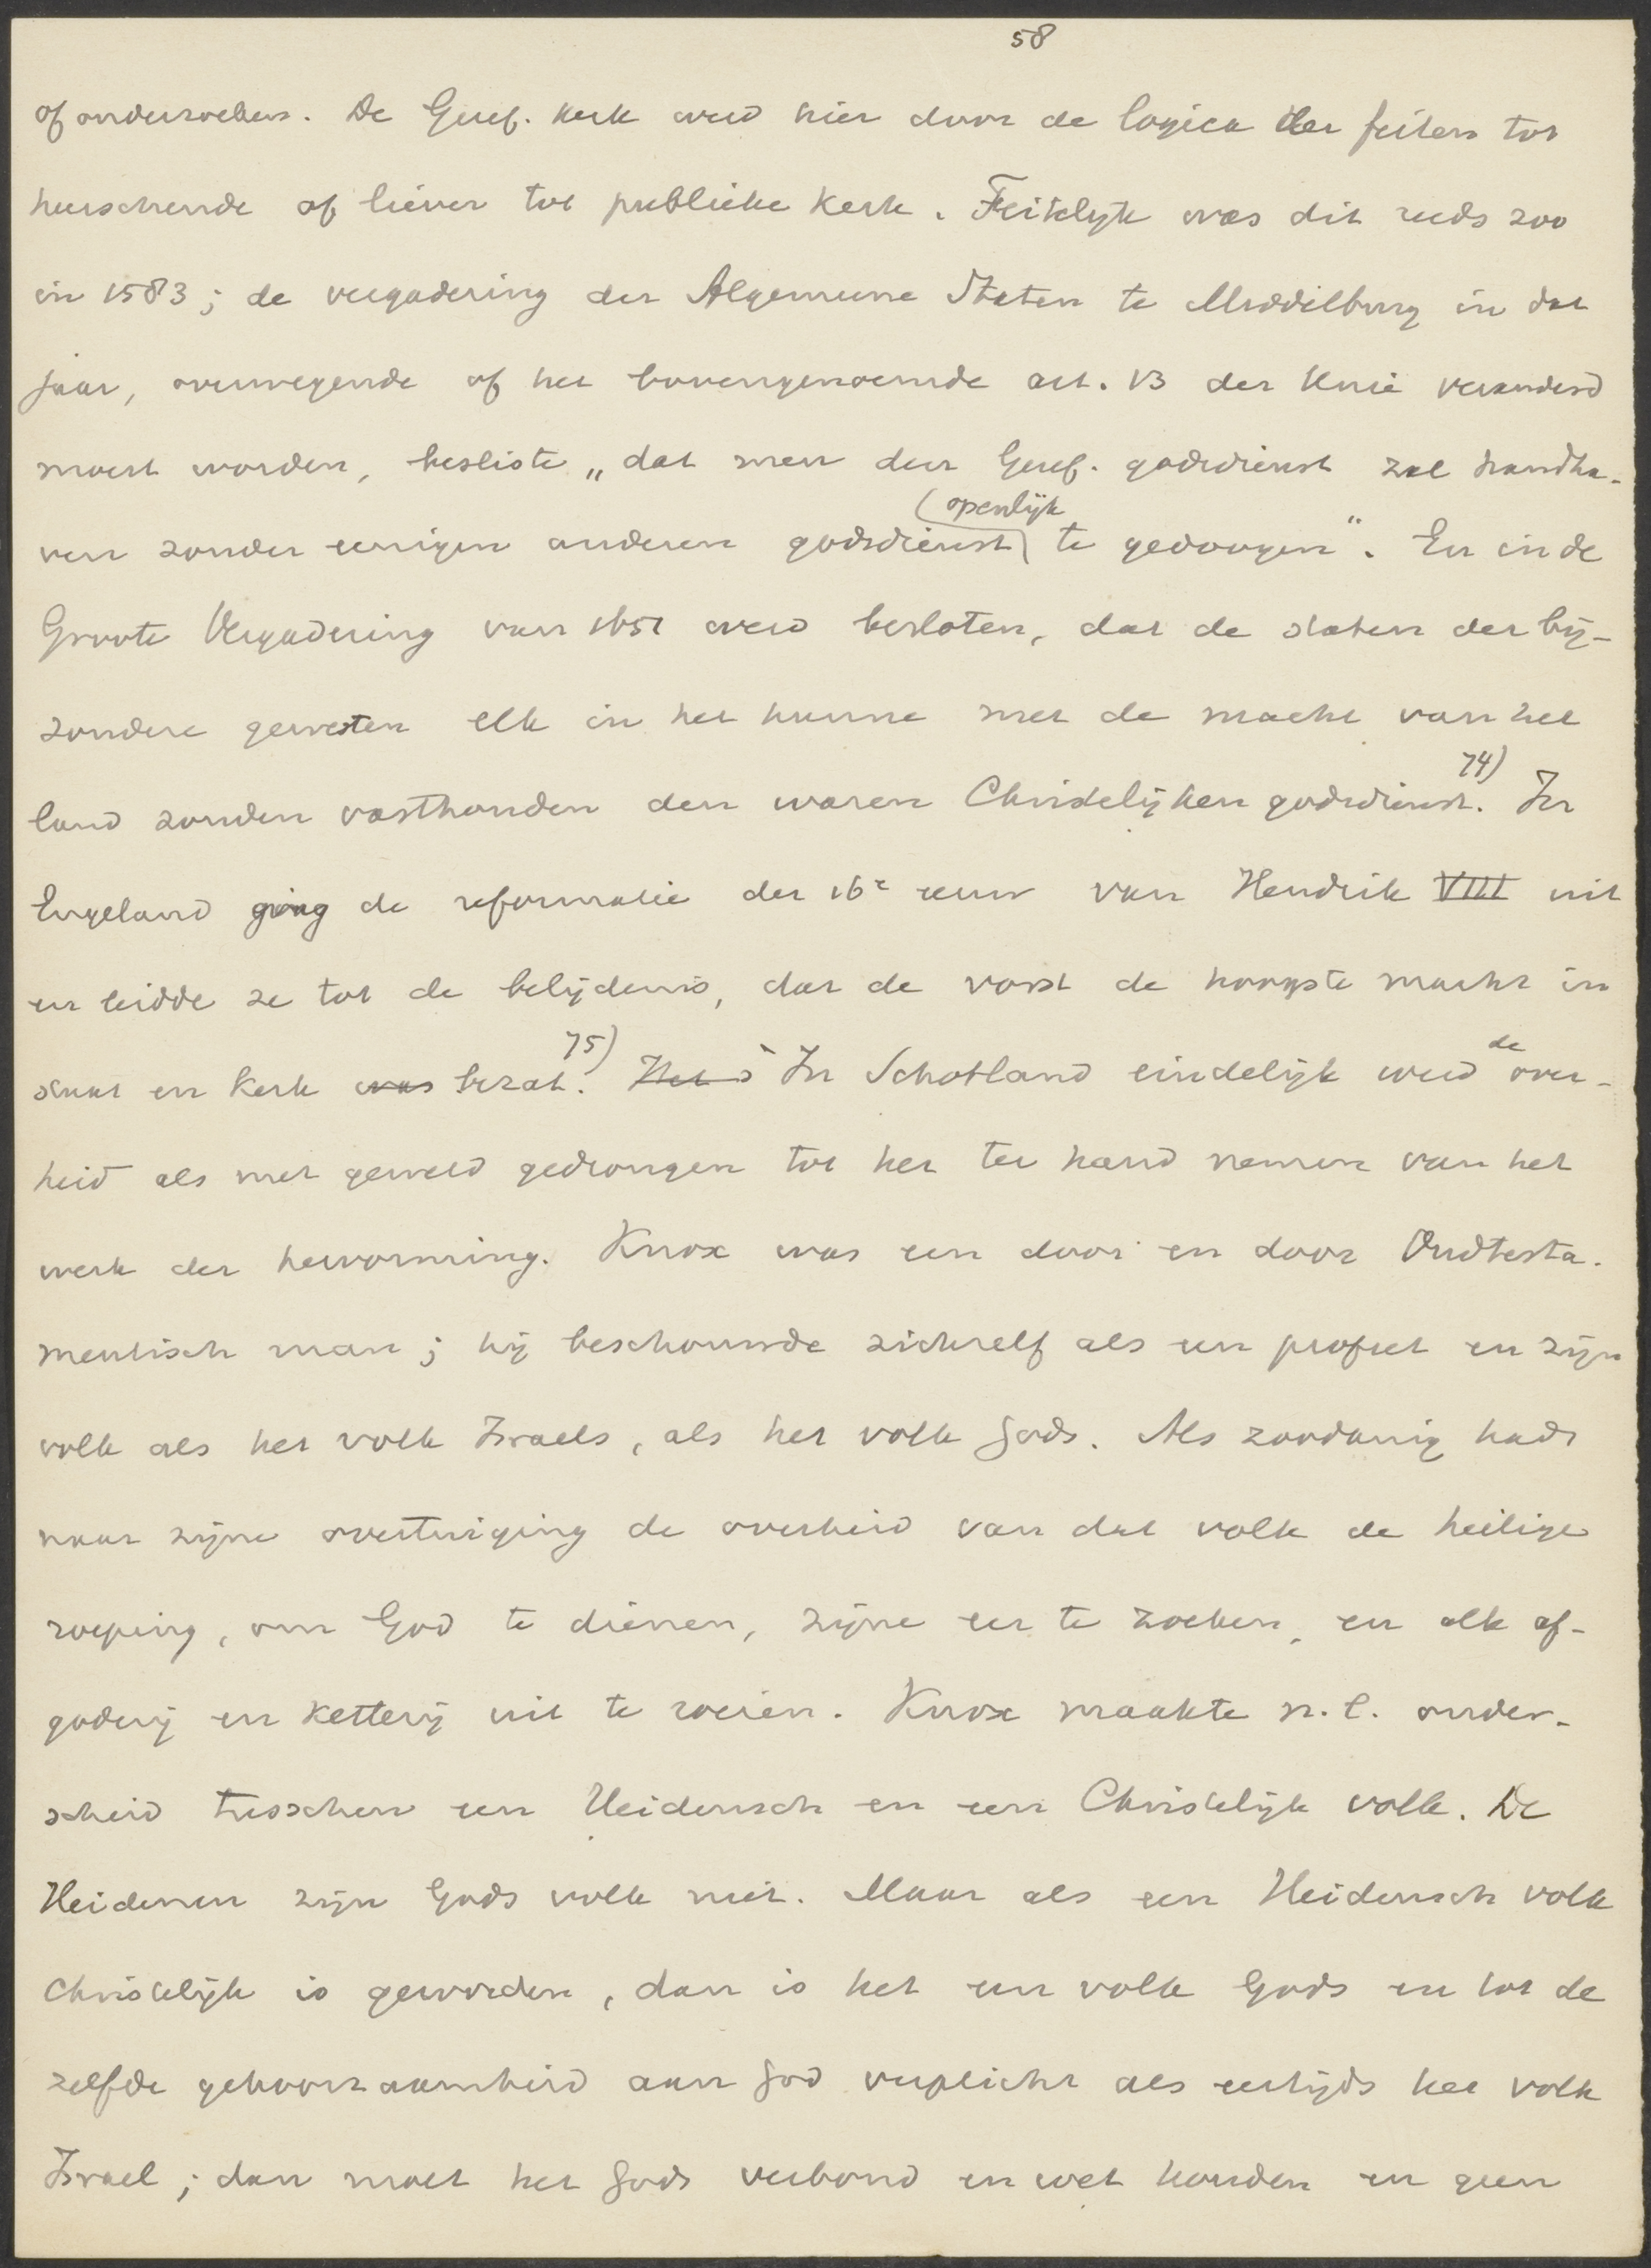 58
of onderzoeken. De Geref. kerk werd hier door de logica der feiten tot
heerschende of liever tot publieke kerk. Feitelijk was dit reeds zoo
in 1583; de vergadering der Algemeene Staten te Middelburg in dat
jaar, overwegende of het bovengenoemde art. 13 der Unie veranderd
moest worden, besliste „dat men den Geref. godsdienst zal handha-
ven zonder eenigen anderen godsdienst openlijk te gedoogen". En in de
Groote Vergadering van 1651 werd besloten, dat de staten der bij-
zondere gewesten elk in het hunne met de macht van het
land zouden vasthouden den waren Christelijken godsdienst. 74) In
Engeland ging de reformatie der 16e eeuw van Hendrik VIII uit
en leidde ze tot de belijdenis, dat de vorst de hoogste macht in
staat en kerk was bezat. 75) Het In Schotland eindelijk werd de over-
heid als met geweld gedrongen tot het ter hand nemen van het
werk der hervorming. Knox was een door en door Oudtesta-
mentisch man; hij beschouwde zichzelf als een profeet en zijn
volk als het volk Israels, als het volk Gods. Als zoodanig had
naar zijne overtuiging de overheid van dat volk de heilige
roeping, om God te dienen, zijne eer te zoeken, en alle af-
goderij en ketterij uit te roeien. Knox maakte n.l. onder-
scheid tusschen een Heidensch en een Christelijk volk. De
Heidenen zijn Gods volk niet. Maar als een Heidensch volk
Christelijk is geworden, dan is het een volk Gods en tot de
zelfde gehoorzaamheid aan God verplicht als eertijds het volk
Israel; dan moet het Gods verbond en wet houden en geen